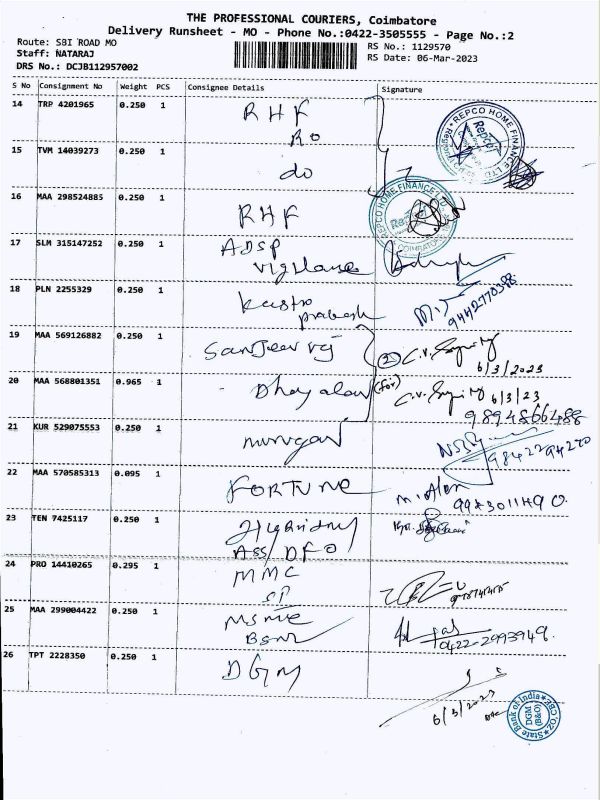 THE PROFESSIONAL COURIERS, Coimbatore
Delivery Runsheet - MO - Phone No.:0422-3505555 - Page No.:2
Route: SBI ROAD MO
Staff: NATARAJ
DRS No.: DCJB112957002
RS No.: 1129570
RS Date: 06-Mar-2023
S No Consignment No Weight PCS Consignee Details Signature
14 TRP 4201965 0.250 1 RHF
RO
15 TVM 14039273 0.250 1 do
16 MAA 298524885 0.250 1 RHF
17 SLM 315147252 0.250 1 ADSP
vigilance
18 PLN 2255329 0.250 1
prabesh
9442770388
19 MAA 569126882 0.250 1 Sanjeev
6/3/2023
20 MAA 568801351 0.965 1 Dhayalan (for)
6/3/23
9894866488
21 KUR 529075553 0.250 1 murugan
9842294270
22 MAA 570585313 0.095 1 FORTUNE
23 TEN 7425117 0.250 1
ASS/DFO
24 PRO 14410265 0.295 1 MMC
SP
25 MAA 299004422 0.250 1 msme
Bsnl
0422-2993949.
26 TPT 2228350 0.250 1 DGM
6/3/2023
REPCO HOME FINANCE LTD
Repco
REPCO HOME FINANCE LTD
COIMBATORE
State Bank of India
DGM
(B&O)
ZO, CBE